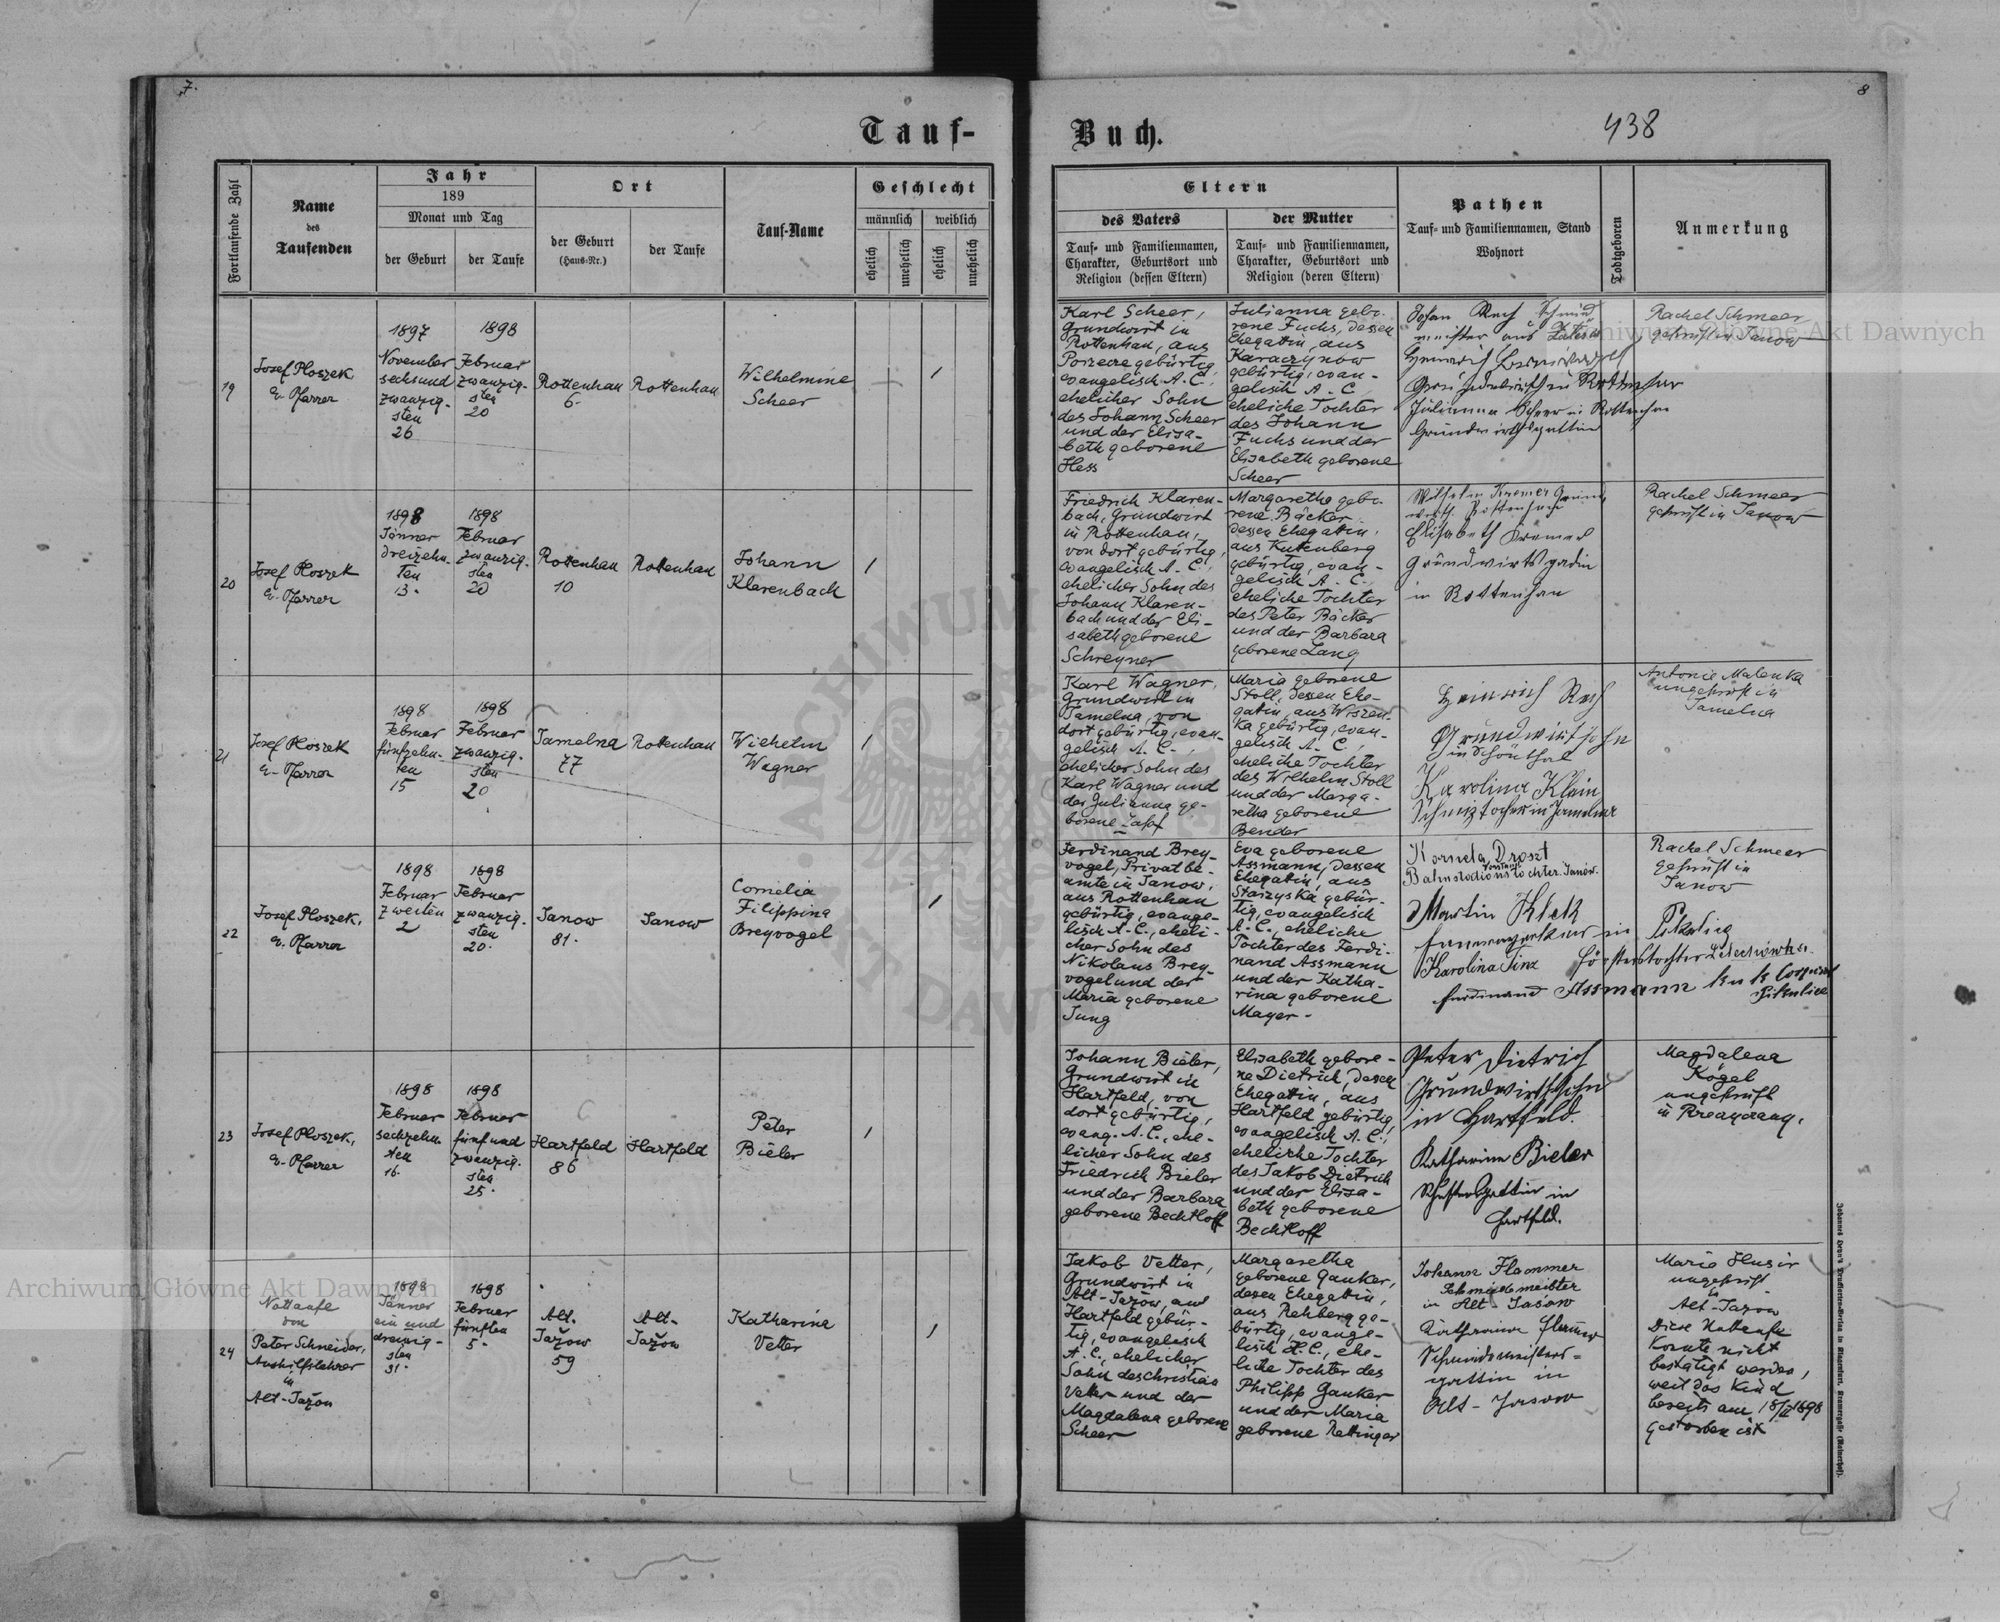 7.
8
Tauf-
Buch.
438
Fortlaufende Zahl
Name
des
Taufenden
Jahr
189
Monat und Tag
der Geburt
der Taufe
Ort
der Geburt
(Haus-Nr.)
der Taufe
Tauf-Name
Geschlecht
männlich
weiblich
ehelich
unehelich
ehelich
unehelich
Eltern
des Vaters
Tauf- und Familiennamen,
Charakter, Geburtsort und
Religion (dessen Eltern)
der Mutter
Tauf- und Familiennamen,
Charakter, Geburtsort und
Religion (deren Eltern)
Pathen
Tauf- und Familiennamen, Stand
Wohnort
Todtgeboren
Anmerkung
19
Josef Ploszek,
ev. Pfarrer
1897
November
sechsund
zwanzig-
sten
26
1898
Februar
zwanzig-
sten
20
Rottenhan
6.
Rottenhan
Wilhelmine
Scheer
1
Karl Scheer,
Grundwirt in
Rottenhan, aus
Porzecze gebürtig,
evangelisch A. C.,
ehelicher Sohn
des Johann Scheer
und der Elisa-
beth geborene
Hess
Julianna gebo-
rene Fuchs, dessen
Ehegattin, aus
Karaczynow
gebürtig, evan-
gelisch A. C
eheliche Tochter
des Johann
Fuchs und der
Elisabeth geborene
Scheer
Johan Rech Schmid
meister aus
Heinrich
Grundwirth in Rottenhan
Julianna Scheer in Rottenhan
Grundwirthsgattin
Rachel Schmeer
geprüft in Janow
20
Josef Ploszek
ev. Pfarrer
1898
Jänner
dreizehn-
ten
13.
1898
Februar
zwanzig-
sten
20
Rottenhan
10
Rottenhan
Johann
Klarenbach
1
Friedrich Klaren-
bach, Grundwirt
in Rottenhan,
von dort gebürtig,
evangelisch A. C.,
ehelicher Sohn des
Johann Klaren-
bach und der Eli-
sabeth geborene
Schreyner
Margaretha gebo-
rene Bäcker
dessen Ehegattin,
aus Kuttenberg
gebürtig, evan-
gelisch A. C.
eheliche Tochter
des Peter Bäcker
und der Barbara
geborene Lang
Wilhelm Kremer Grund
wirth Rottenhan
Elisabeth Krämer
Gründwirts gadin
in Rottenhan
Rachel Schmeer
geprüft in Janow
21
Josef Ploszek
ev. Pfarrer
1898
Februar
fünfzehn-
ten
15
1898
Februar
zwanzig-
sten
20
Jamelna
77
Rottenhan
Wilhelm
Wagner
1
Karl Wagner,
Grundwirt in
Jamelna, von
dort gebürtig, evan-
gelisch A. C.,
ehelicher Sohn des
Karl Wagner und
der Julianna ge-
borene
Maria geborene
Stoll, dessen Ehe-
gattin, aus Wiszen-
ka gebürtig, evan-
gelisch A. C.,
eheliche Tochter
des Wilhelm Stoll
und der Marga-
retha geborene
Bender
Heinrich Rech
Grundwirtsohn
in Schönthal
Karolina Klein
Schmiztochter in Jamelna
Antonie Malenka
ungeprüft in
Jamelna
22
Josef Ploszek,
ev. Pfarrer
1898
Februar
zweiten
2
1898
Februar
zwanzig-
sten
20.
Janow
81.
Janow
Cornelia
Filippina
Breyvogel
1
Ferdinand Brey-
vogel, Privatbe-
amte in Janow,
aus Rottenhan
gebürtig, evange-
lisch A. C., eheli-
cher Sohn des
Nikolaus Brey-
vogel und der
Maria geborene
Jung
Eva geborene
Assmann, dessen
Ehegattin, aus
Starzyska gebür-
tig, evangelisch
A. C., eheliche
Tochter des Ferdi-
nand Assmann
und der Katha-
rina geborene
Mayer.
Kornela Droszt
Bahnstations vorstand tochter. Janów.
Martin Klek
in
Karolina Försterstochter
Ferdinand Assmann
Rachel Schmeer
geprüft in
Janow
23
Josef Ploszek,
ev. Pfarrer
1898
Februar
sechzehn
ten
16.
1898
Februar
fünf und
zwanzig-
sten
25.
Hartfeld
86
Hartfeld
Peter
Bieler
1
Johann Bieler,
Grundwirt in
Hartfeld, von
dort gebürtig,
evang. A. C., ehe-
licher Sohn des
Friedrich Bieler
und der Barbara
geborene Bechtloff
Elisabeth gebore-
ne Dietrich, dessen
Ehegattin, aus
Hartfeld gebürtig,
evangelisch A. C.,
eheliche Tochter
des Jakob Dietrich
und der Elisa-
beth geborene
Bechtloff
Peter Dietrich
Grundwirthssohn
in Hartfeld.
Katharina Bieler
Schustersgattin in
Hartfeld.
Magdalena
Kogel
ungeprüft
in
24
Nottaufe
von
Peter Schneider,
Aushilfslehrer
in
Alt-Jažow
1898
Jänner
ein und
dreissig-
sten
31.
1898
Februar
fünften
5.
Alt.
Jažow
59
Alt-
Jažow
Katharina
Vetter
1
Jakob Vetter,
Grundwirt in
Alt-Jažow, aus
Hartfeld gebür-
tig, evangelisch
A. C., ehelicher
Sohn des Christian
Vetter und der
Magdalena geborene
Scheer
Margaretha
geborene Ganker,
dessen Ehegattin,
aus Rehberg ge-
bürtig, evange-
lisch H. C., ehe-
liche Tochter des
Philipp Ganker
und der Maria
geborene Rettinger
Johann Flammer
Schmiedemeister
in Alt-Jasow
Katharina Flamer
Schmidemeisters-
gattin in
Alt-Jasow
Maria Husir
ungeprüft
in
Alt-Jazow
Diese Nottaufe
konnte nicht
bestätigt werden,
weil das Kind
bereits am 18/II 1898
gestorben ist
Archiwum Główne Akt Dawnych
Archiwum Główne Akt Dawnych